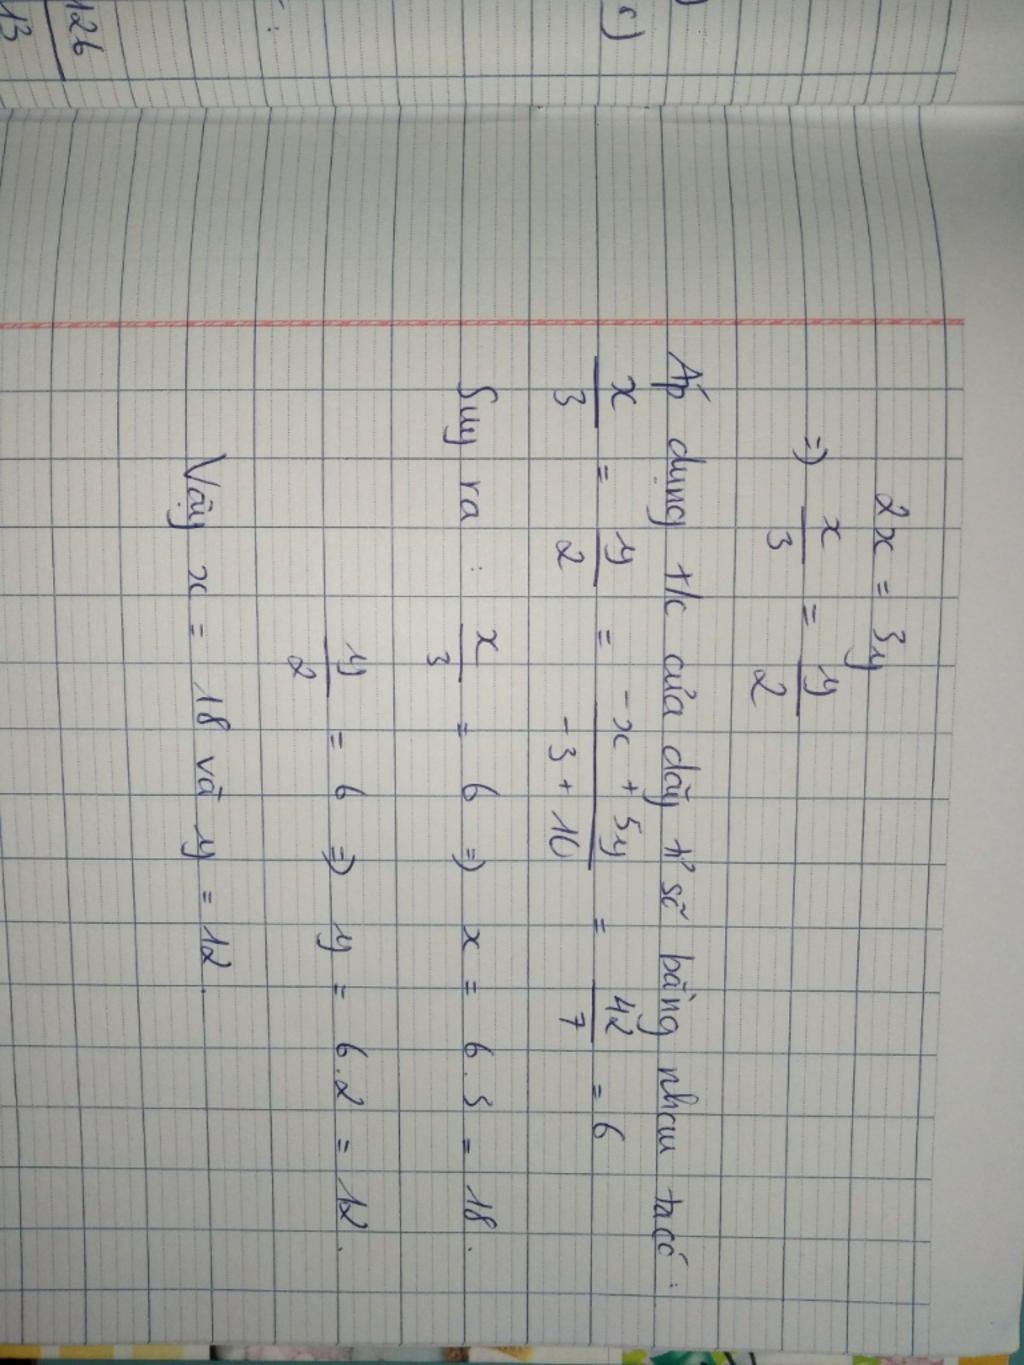 c)
:
126
13
2x = 3y
=> x/3 = y/2
Áp dụng t/c của dãy tỉ số bằng nhau ta có :
x/3 = y/2 = -x + 5y/-3 + 10 = 42/7 = 6
Suy ra : x/3 = 6 => x = 6.3 = 18.
y/2 = 6 => y = 6.2 = 12.
Vậy x = 18 và y = 12.